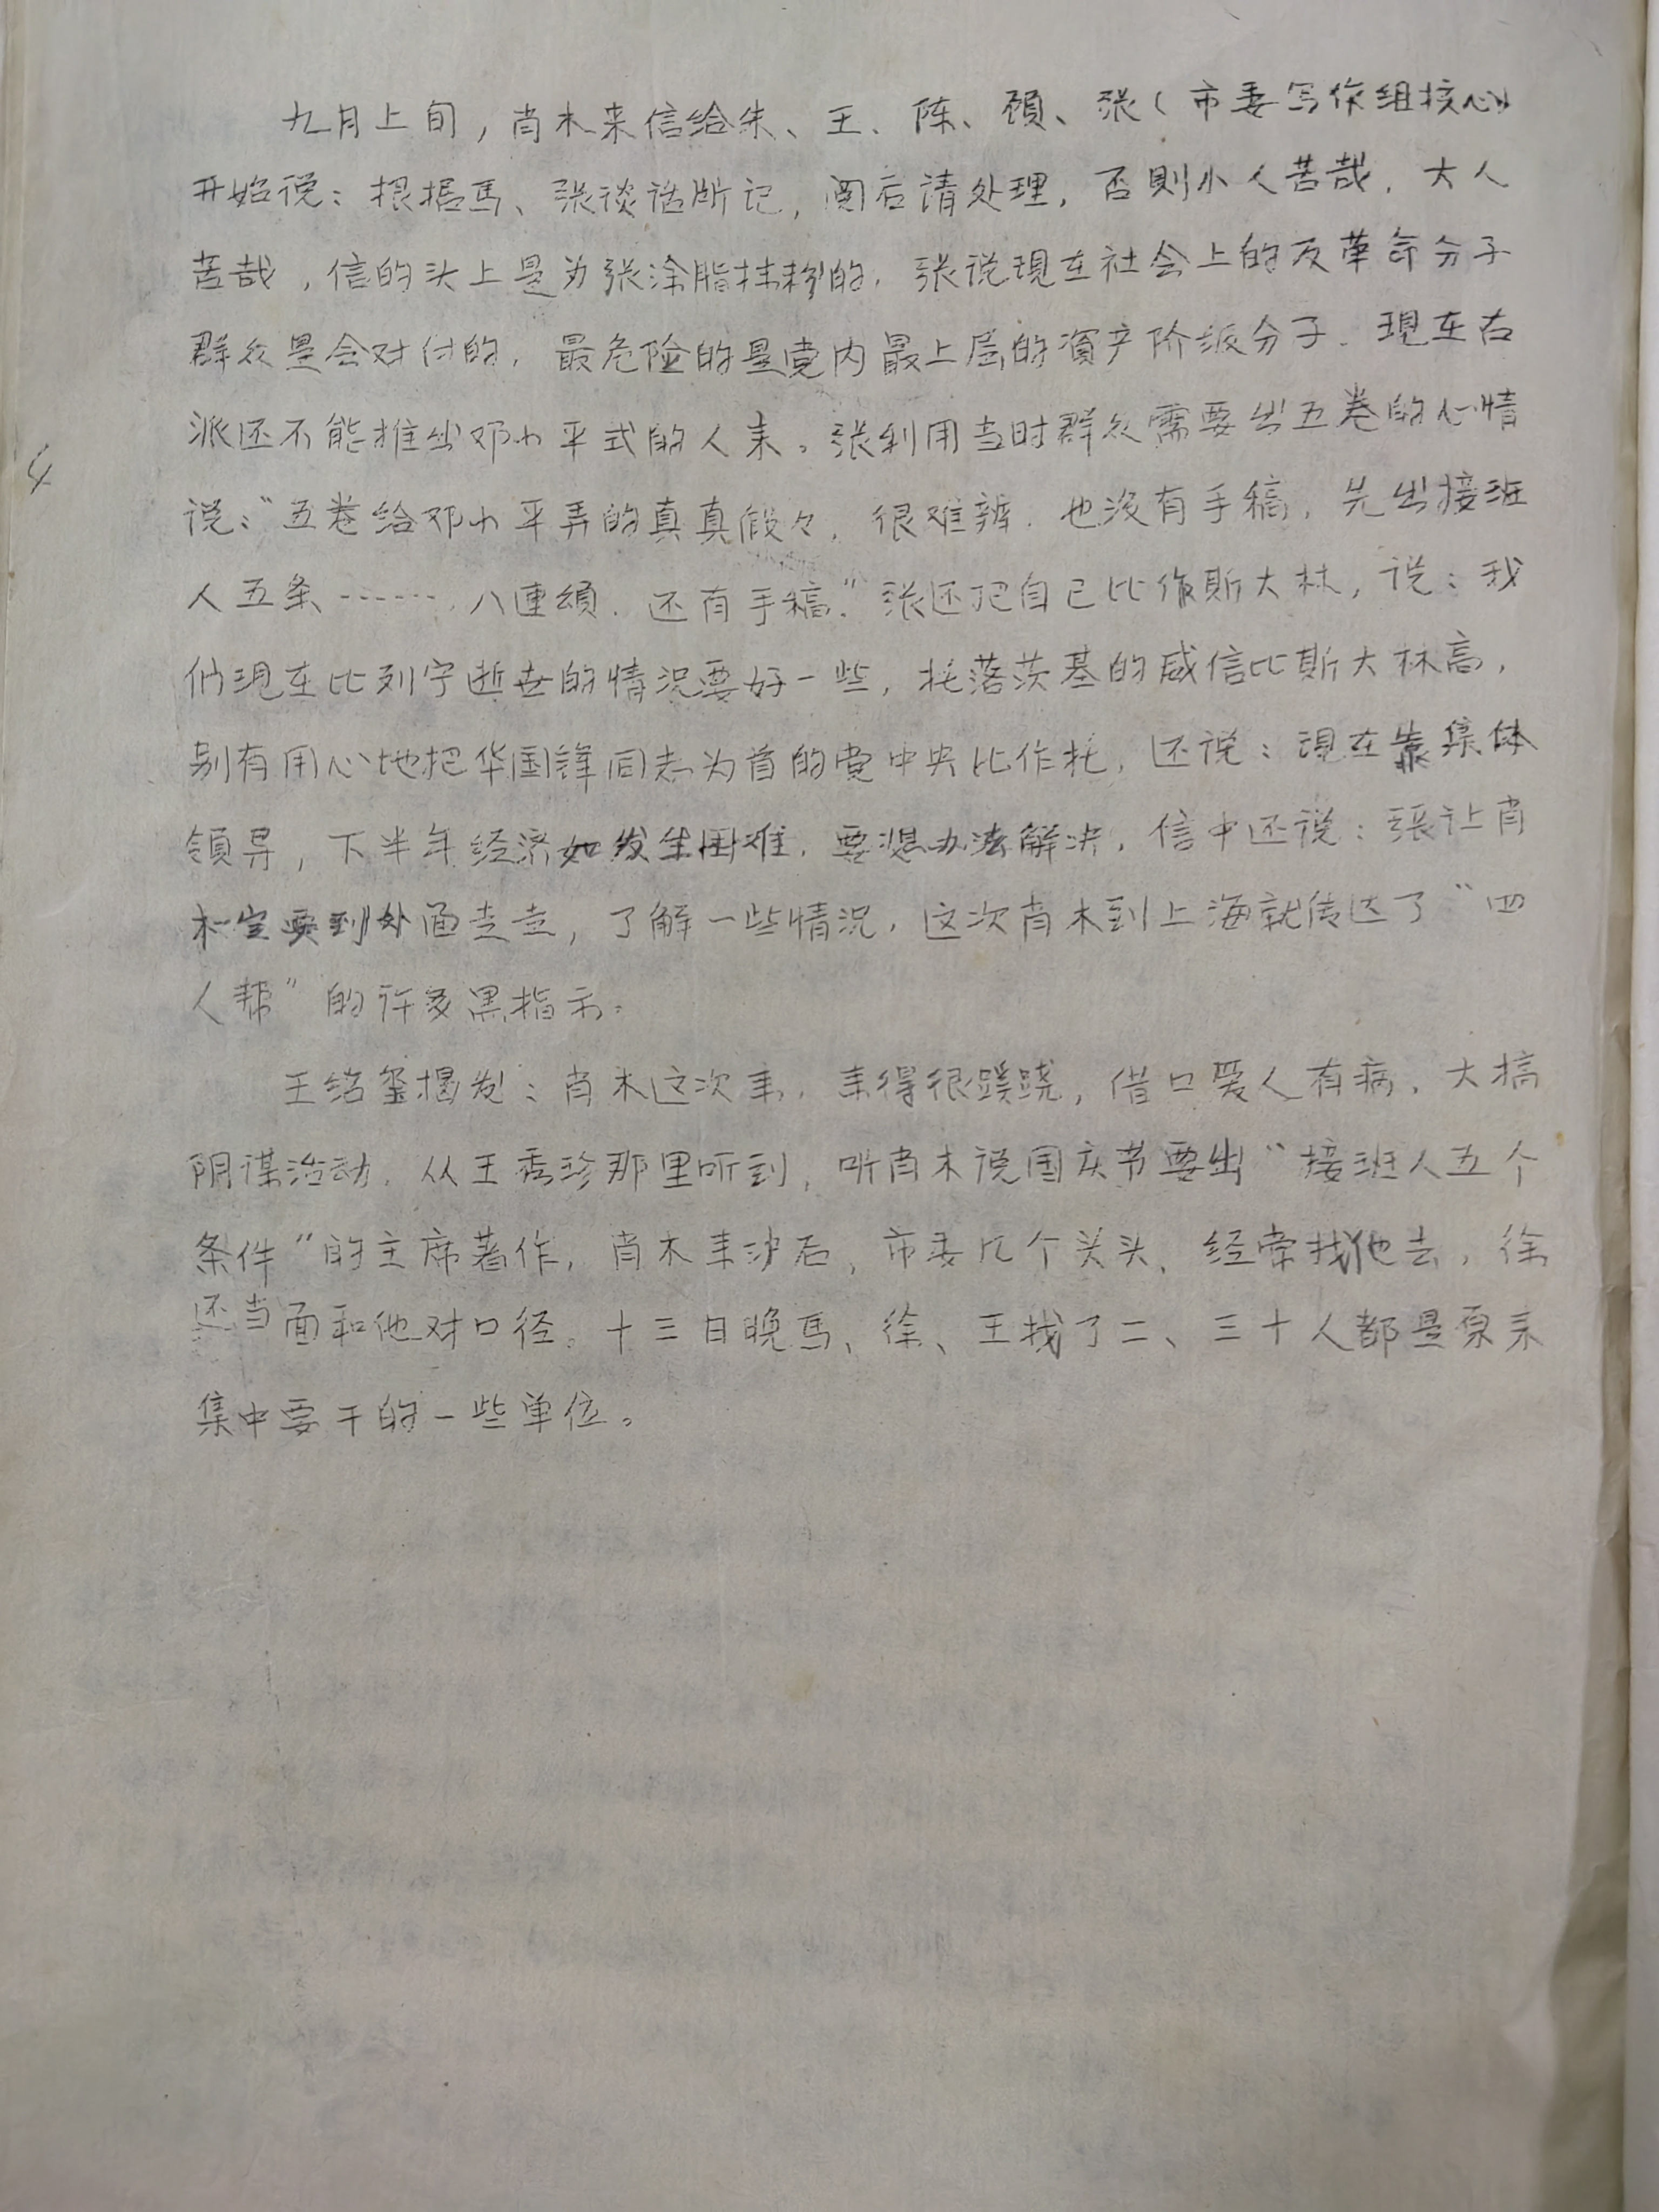 九月上旬，肖木来信给朱、王、陈、顾、张（市委写作组核心）
开始说：根据马、张谈话所记，阅后请处理，否则小人苦哉，大人
苦哉，信的头上是为张涂脂抹粉的，张说现在社会上的反革命分子
群众是会对付的，最危险的是党内最上层的资产阶级分子．现在右
派还不能推出邓小平式的人来。张利用当时群众需要出五卷的心情
说：“五卷给邓小平弄的真真假々，很难辨．也没有手稿，先出接班
人五条……，八连颂．还有手稿．”张还把自己比作斯大林，说：我
们现在比列宁逝世的情况要好一些，托落茨基的威信比斯大林高，
别有用心地把华国锋同志为首的党中央比作托，还说：现在靠集体
领导，下半年经济如发生困难，要想办法解决，信中还说：张让肖
木一定要到外面走走，了解一些情况，这次肖木到上海就传达了“四
人帮”的许多黑指示。
王绍玺揭发：肖木这次来，来得很蹊跷，借口爱人有病，大搞
阴谋活动．从王秀珍那里听到，听肖木说国庆节要出“接班人五个
条件”的主席著作，肖木来沪后，市委几个头头、经常找他去，徐
还当面和他对口径。十三日晚马、徐、王找了二、三十人都是原来
集中要干的一些单位。
4